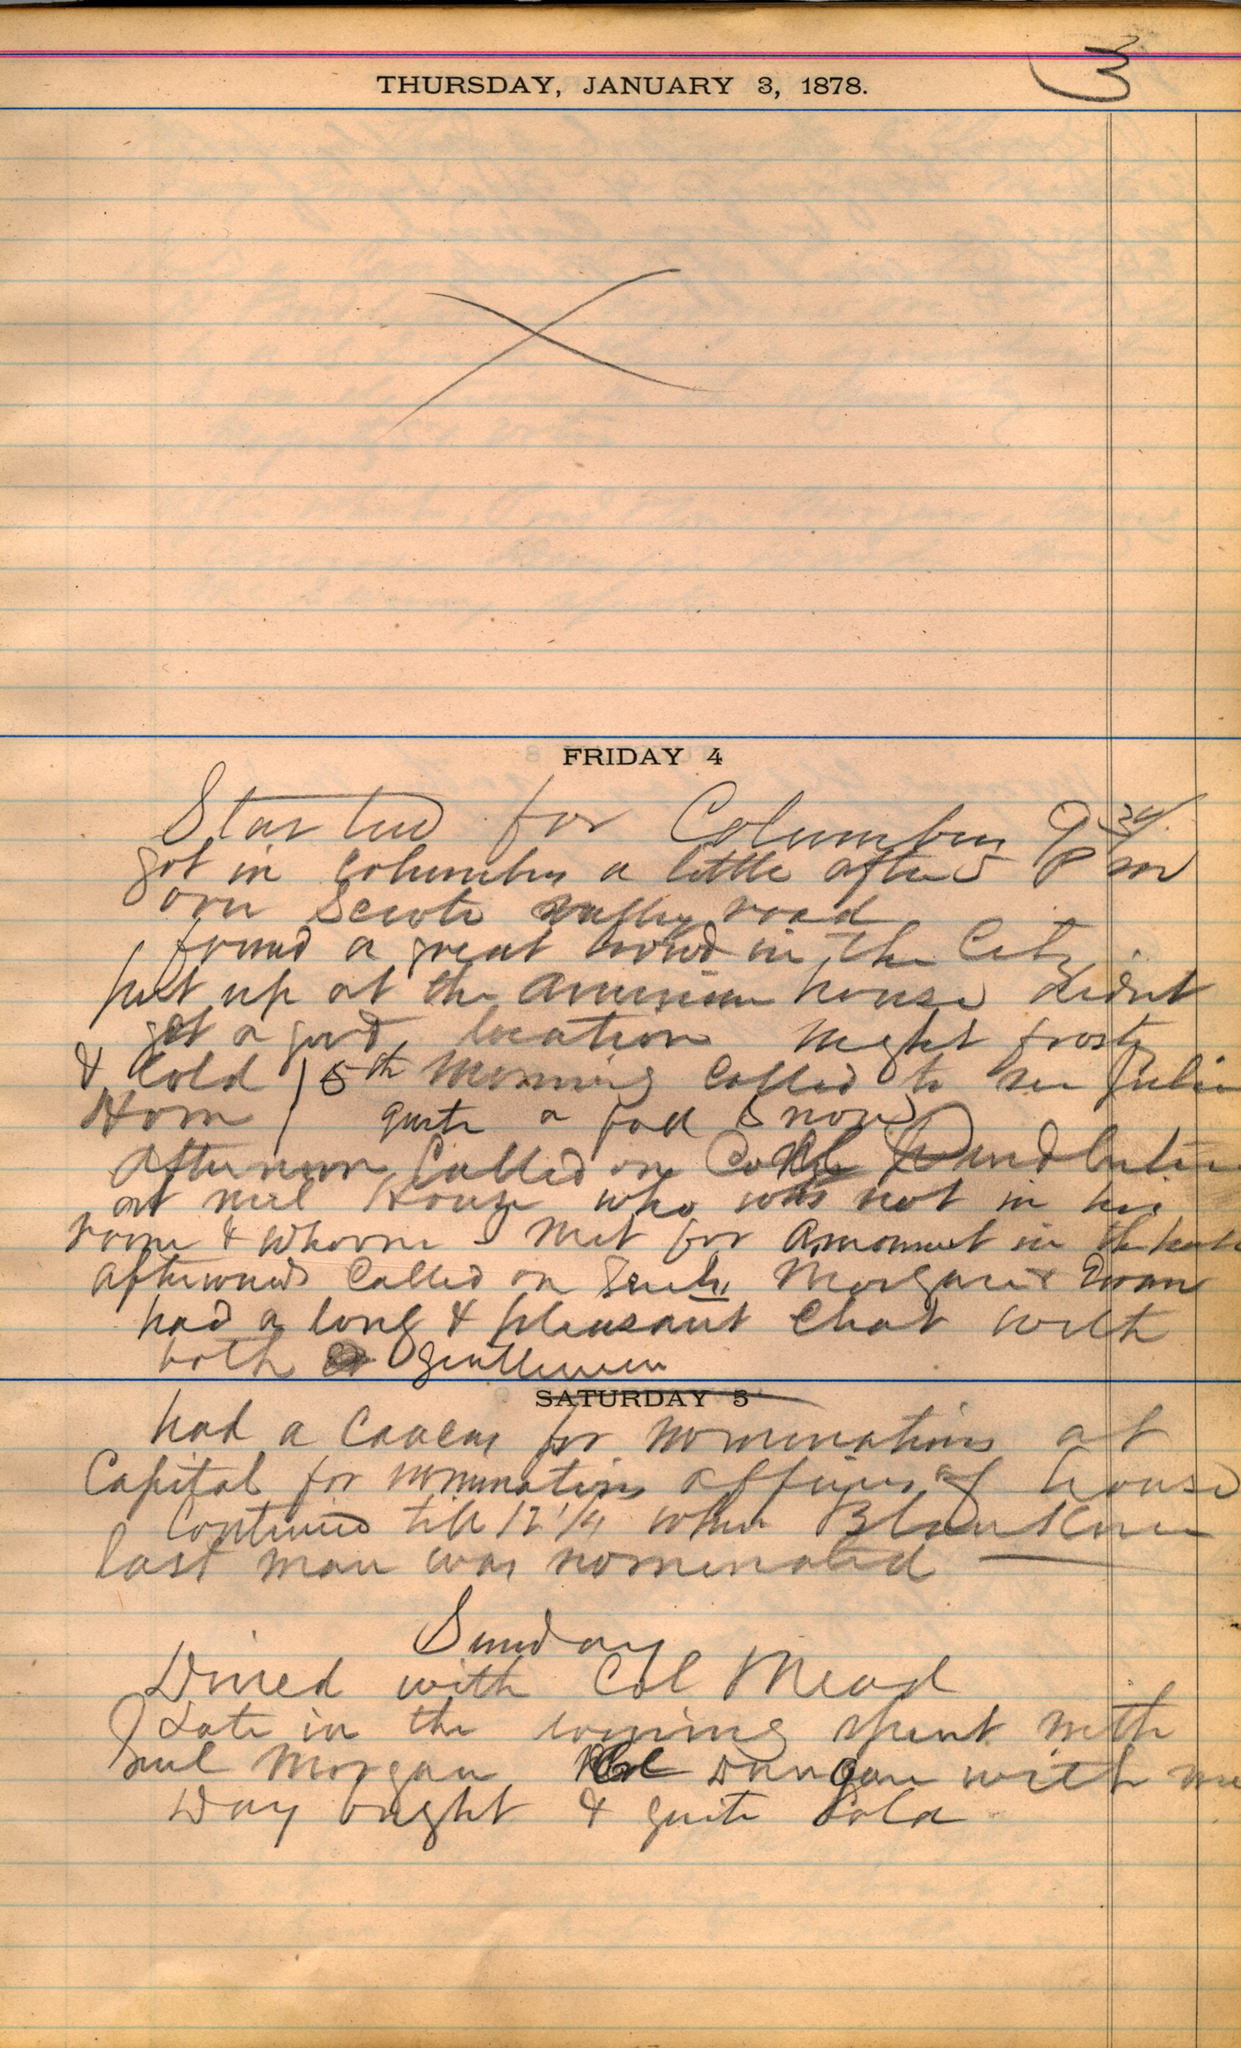 3
THURSDAY, JANUARY 3, 1878.
FRIDAY 4
Started for Columbus 9 30/
got in Columbus a little after 5 P m
over Scioto valley road
found a great crowd in the City
put up at the American house didnt
get a good location Night frosty
& Cold / 5th Morning Called to see Julia
Horn / quite a fall Snow
afternoon Called on Col
at Neil House who was not in his
room & whoom I met for a moment in the
afterwards Called on Morgan & Ewan
had a long & pleasant Chat with
both gentlemen
SATURDAY 5
had a Caucus for nominations at
Capital for nominations officers of house
Continued till 12 1/4 when
last man was nominated
Sunday
Dined with Col Mead
Late in the evening spent with
Morgan Col Dungan with me
Day bright & quite Cold